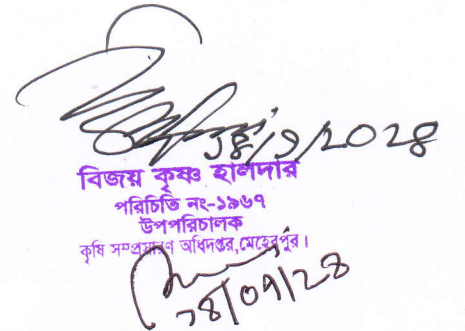 ১৪/৭/২০২৪
বিজয় কৃষ্ণ হালদার
পরিচিতি নং-১৯৬৭
উপপরিচালক
কৃষি সম্প্রসারণ অধিদপ্তর,মেহেরপুর।
১৪/০৭/২৪